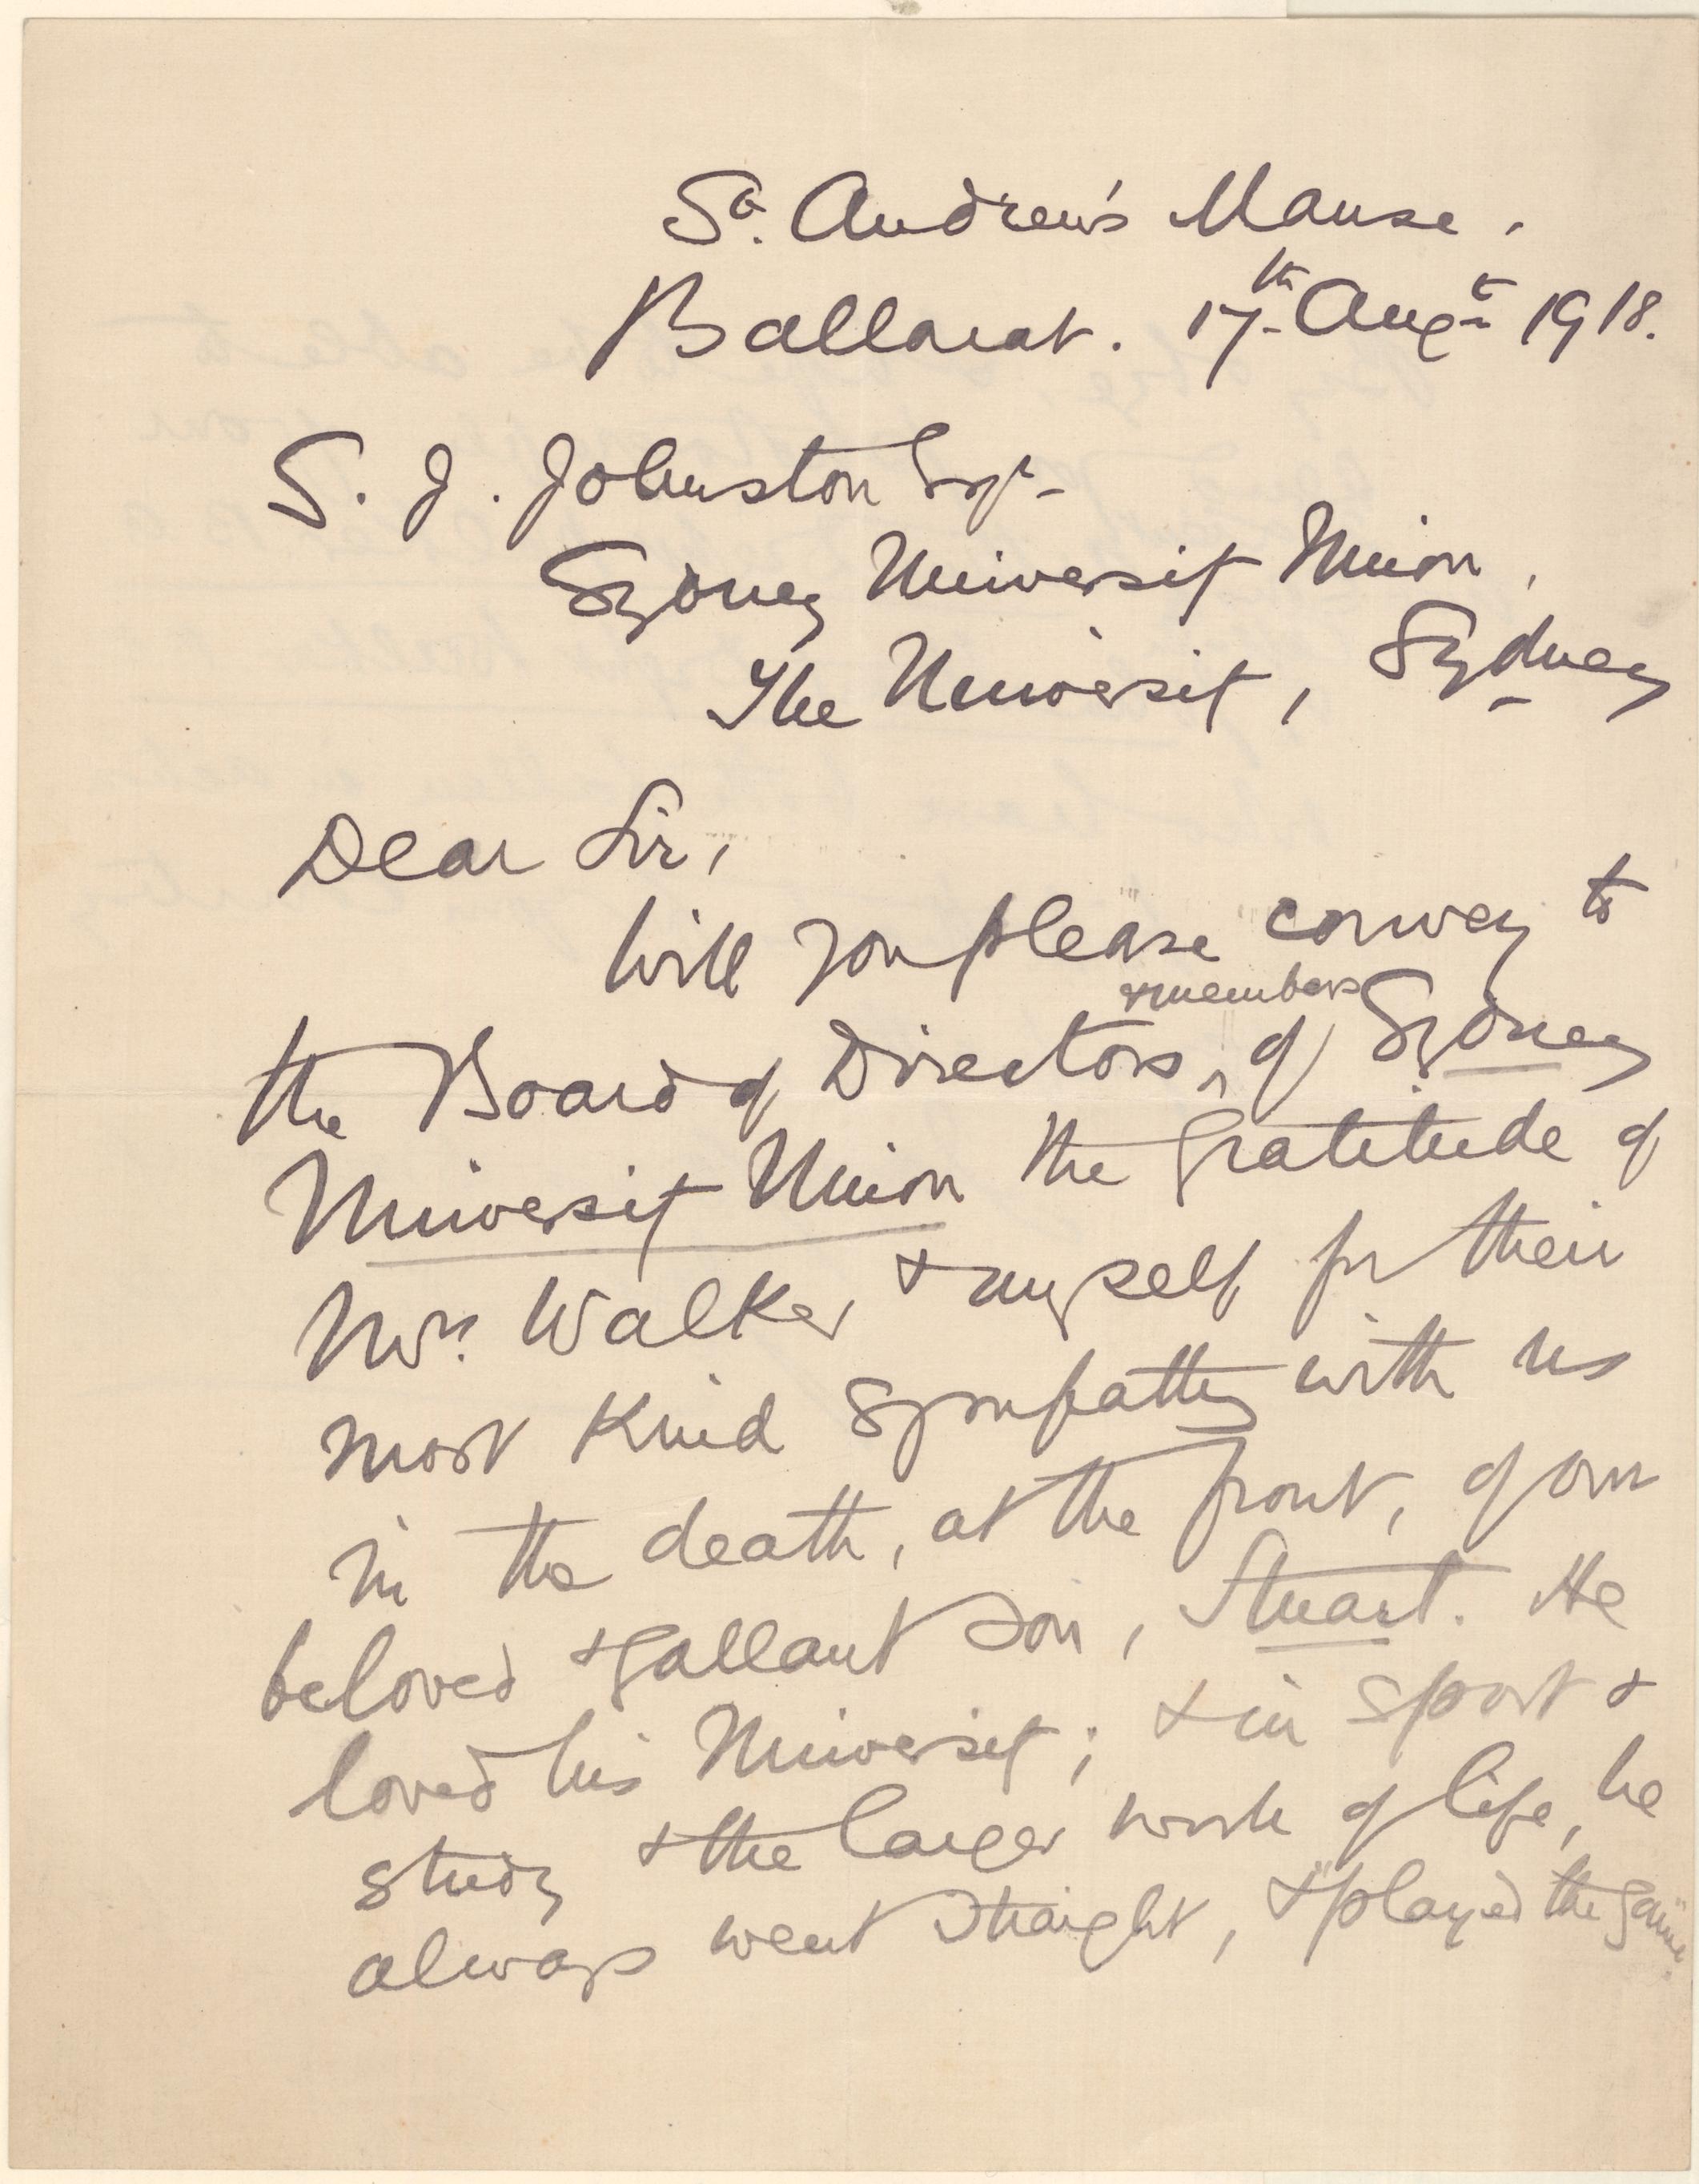 St. Andrew's Manse.
Ballarat. 17th Augt 1918.
S. J. Johnston Esqr.
Sydney University Union,
The University, Sydney
Dear Sir,
Will you please convey to
the Board of Directors, & members of Sydney
University Union the gratitude of
Mrs. Walker & myself for their
most kind sympathy with us
in the death, at the front, of our
beloved & gallant son, Stuart. He
loved his University; & in sport &
study & the larger work of life, he
always went straight, & "played the game".